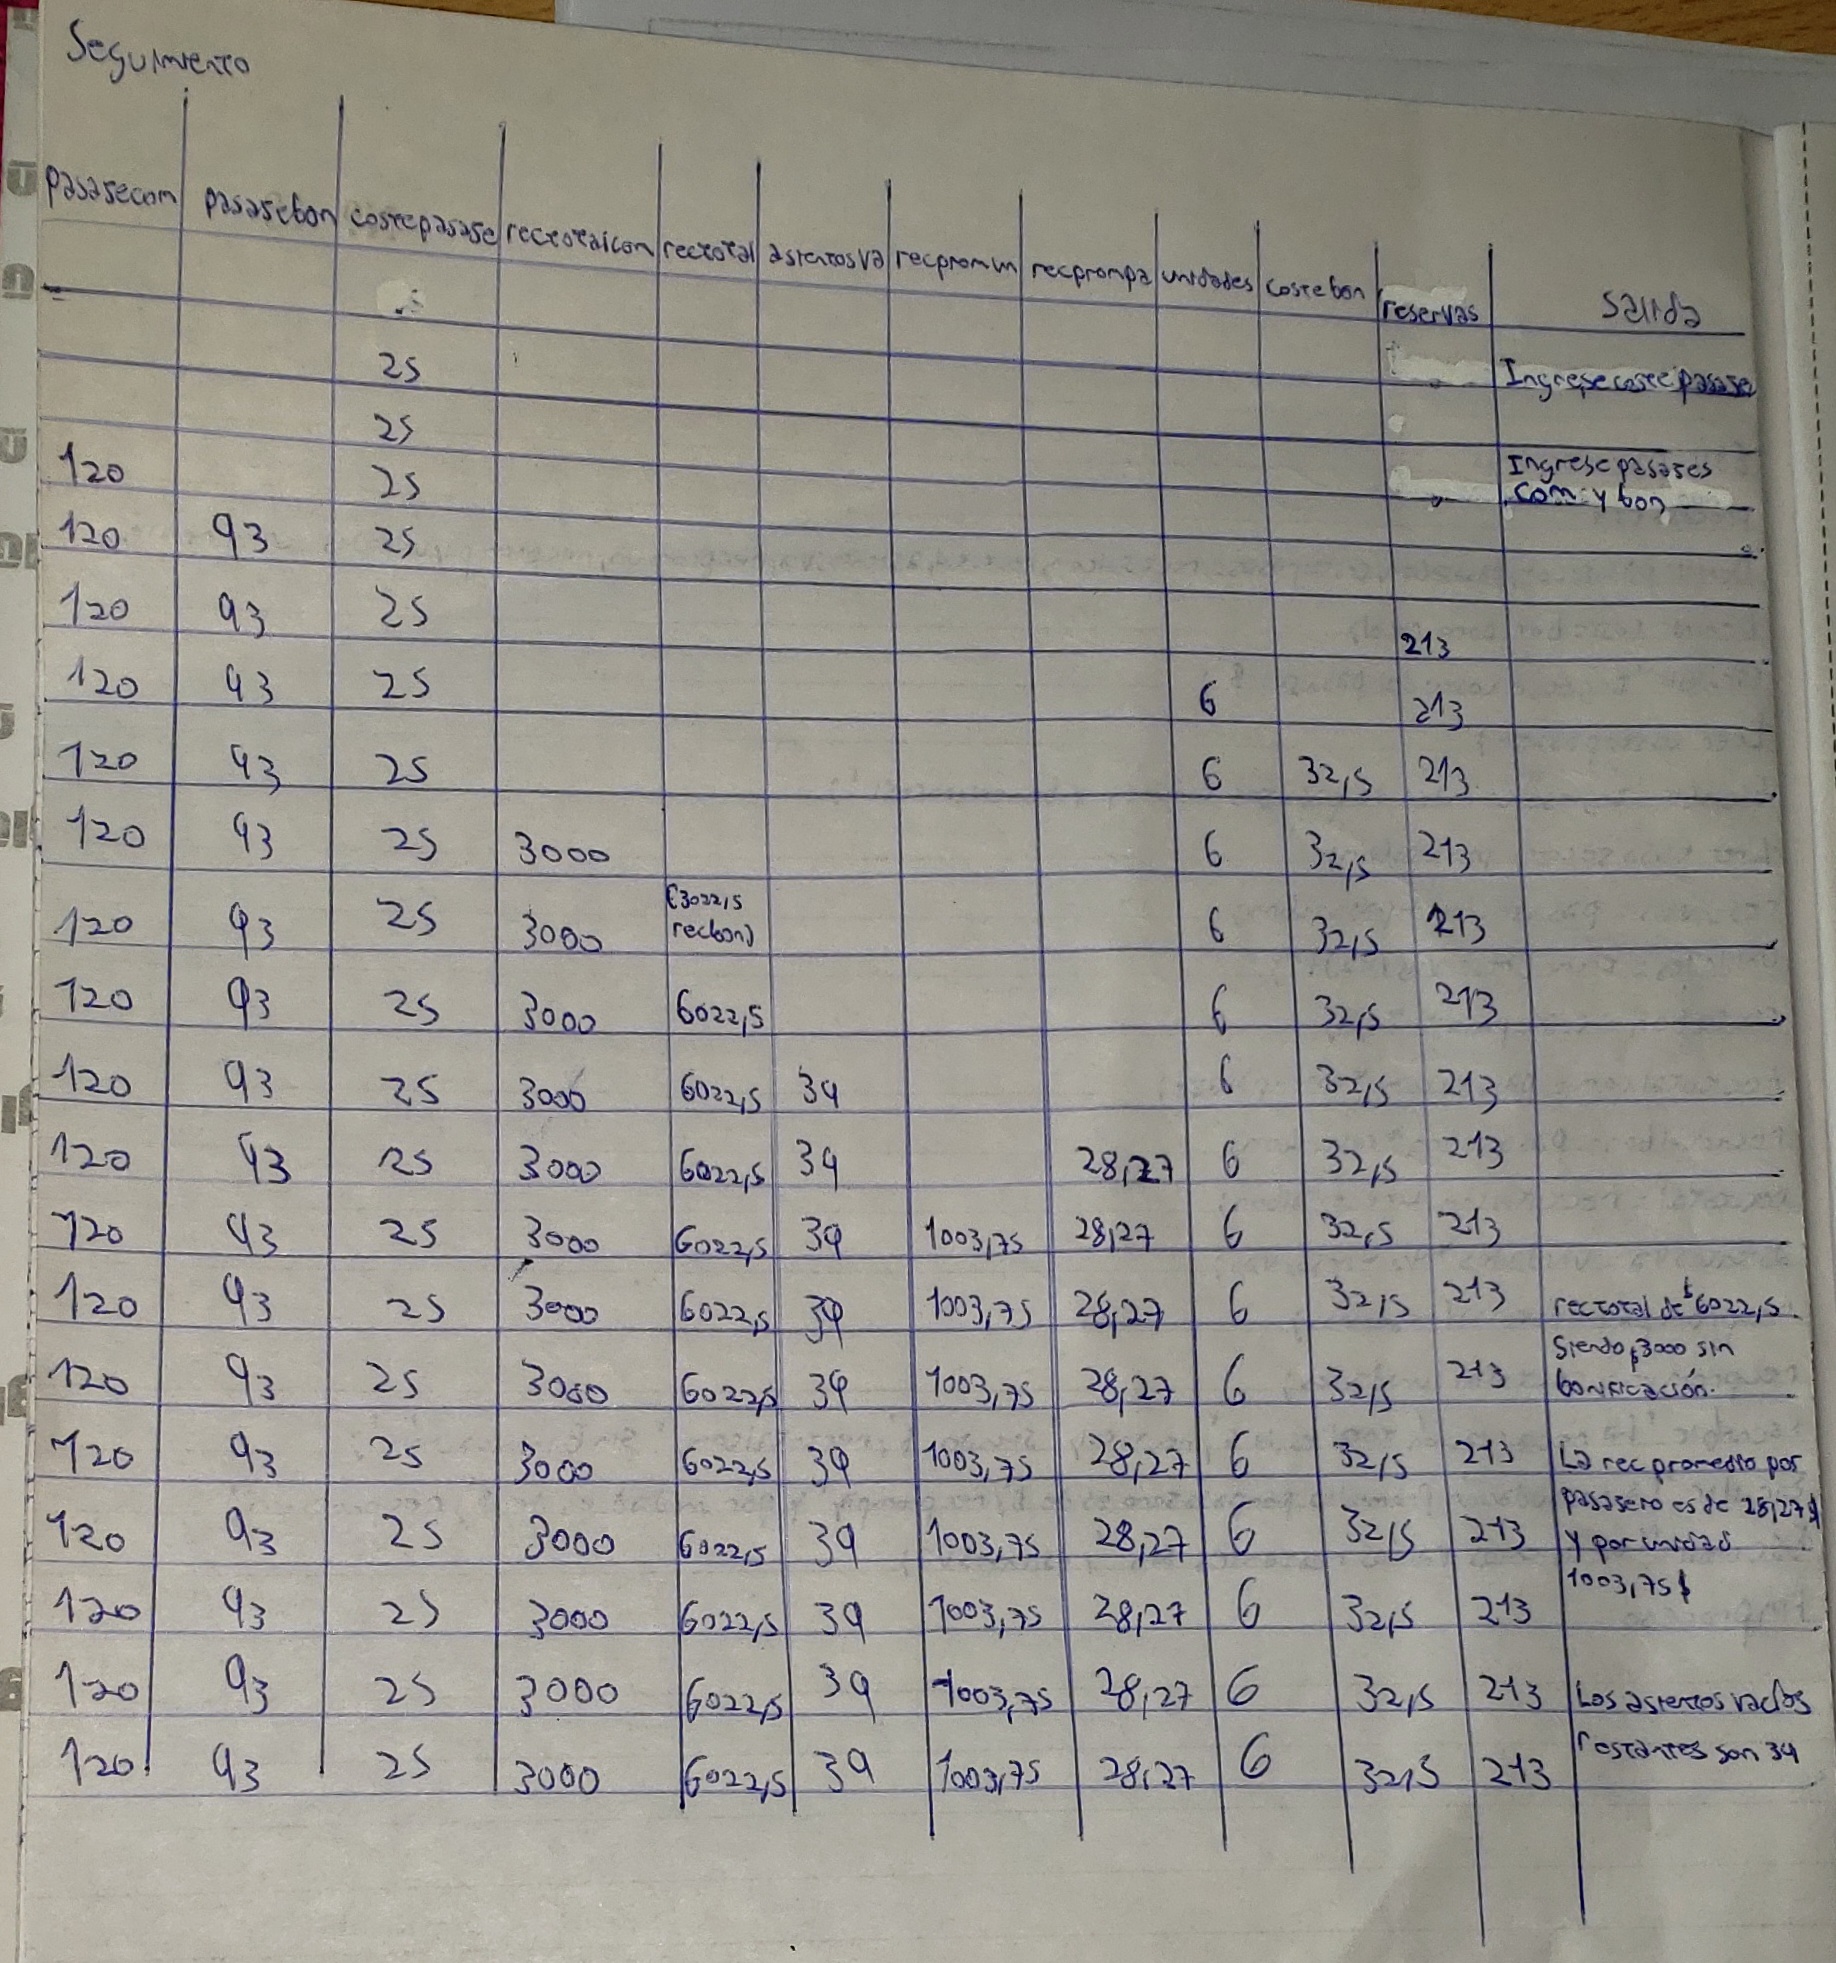 Seguimiento
pasasecom pasasebon costepasase rectotalcon rectotal asientosva recpromun recprompa unidades costebon reservas Salida
25 Ingrese coste pasase
25
120 25 Ingrese pasases com y bon
120 93 25
120 93 25 213
120 93 25 6 213
120 93 25 6 32,5 213
120 93 25 3000 6 32,5 213
120 93 25 3000 (3022,5 recbon) 6 32,5 213
120 93 25 3000 6022,5 6 32,5 213
120 93 25 3000 6022,5 39 6 32,5 213
120 93 25 3000 6022,5 39 28,27 6 32,5 213
120 93 25 3000 6022,5 39 1003,75 28,27 6 32,5 213
120 93 25 3000 6022,5 39 1003,75 28,27 6 32,5 213 rectotal de $6022,5
120 93 25 3000 6022,5 39 1003,75 28,27 6 32,5 213 Siendo $3000 sin bonificación.
120 93 25 3000 6022,5 39 1003,75 28,27 6 32,5 213 La rec promedio por
120 93 25 3000 6022,5 39 1003,75 28,27 6 32,5 213 pasasero es de 28,27$ y por unidad
120 93 25 3000 6022,5 39 1003,75 28,27 6 32,5 213 1003,75$
120 93 25 3000 6022,5 39 1003,75 28,27 6 32,5 213 Los asientos vacíos
120 93 25 3000 6022,5 39 1003,75 28,27 6 32,5 213 restantes son 39